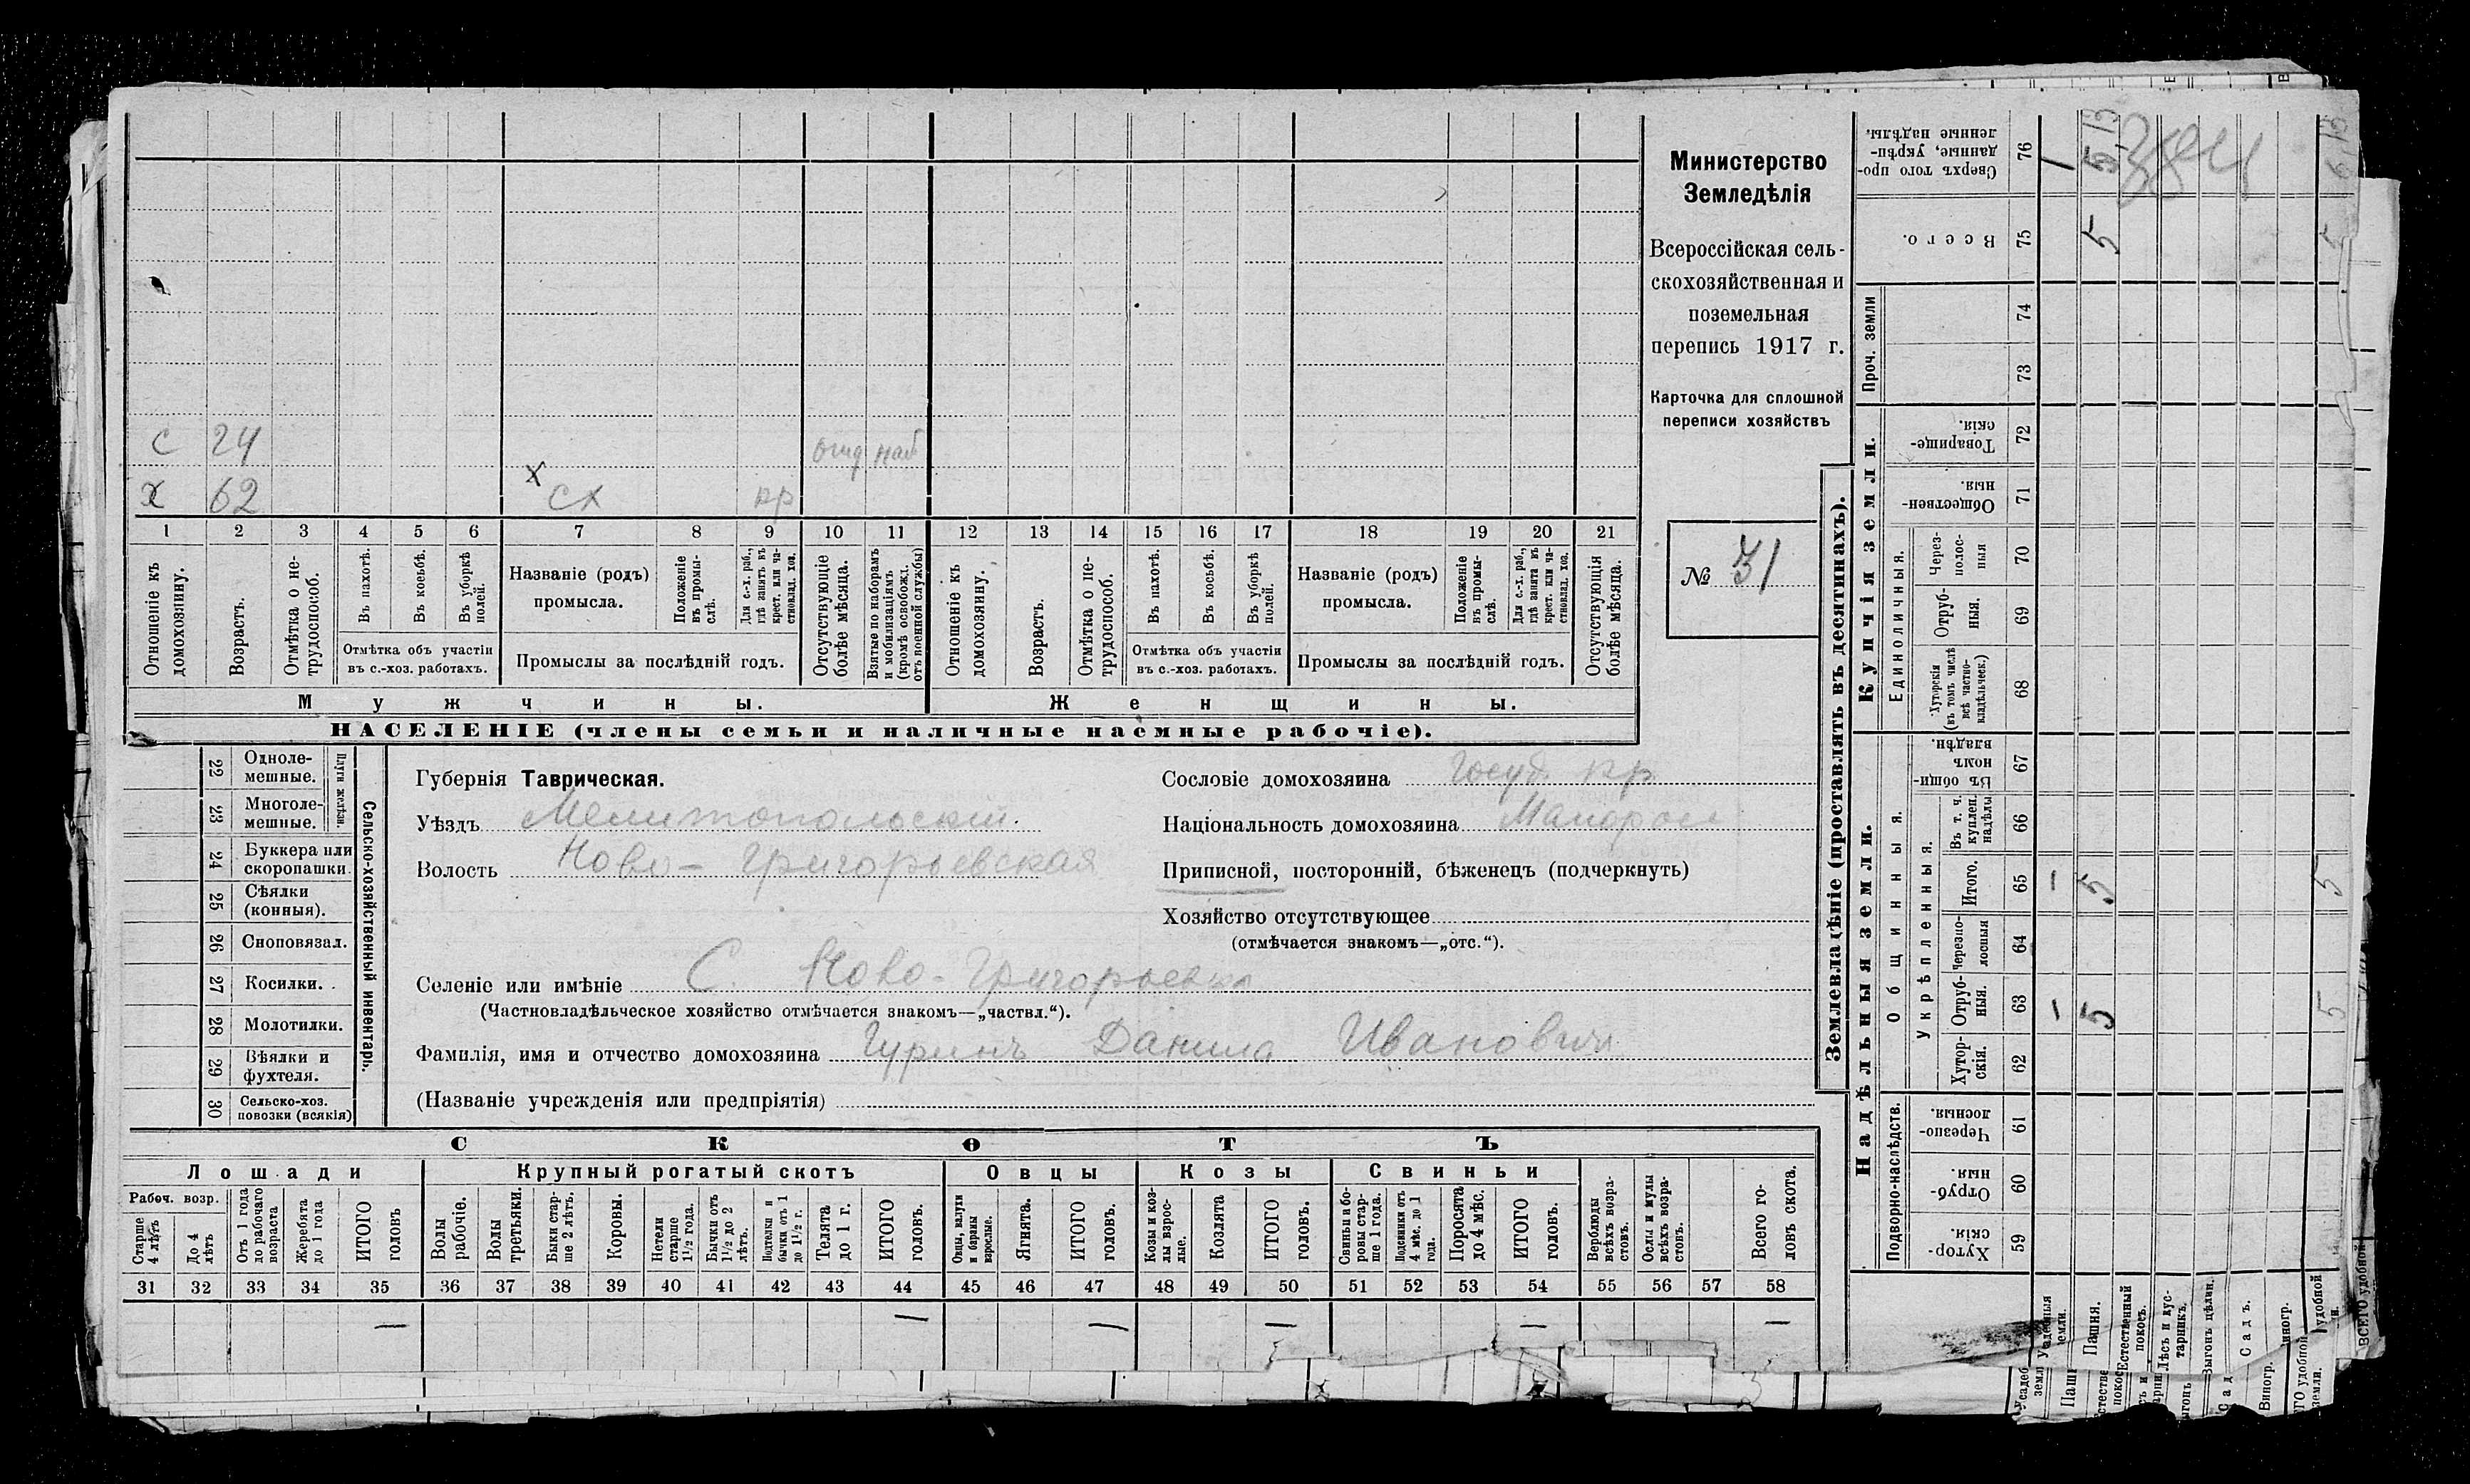 С 24 отд наб
Х 62 Х СХ кр
1 2 3 4 5 6 7 8 9 10 11 12 13 14 15 16 17 18 19 20 21
Отношеніе къ домохозяину.
Возрастъ.
Отмѣтка о не-трудоспособ.
Въ пахотѣ.
Въ косьбѣ.
Въ уборкѣ полей.
Отмѣтка объ участіи
въ с.-хоз. работахъ.
Названіе (родъ)
промысла.
Положеніе въ промы-слѣ.
Для с.-х. раб., гдѣ занятъ въ крест. или ча-стновлад. хоз.
Промыслы за послѣдній годъ.
Отсутствующіе болѣе мѣсяца.
Взятые по наборамъ и мобилизаціямъ (кромѣ освобожд. отъ военной службы)
Отношеніе къ домохозяину.
Возрастъ.
Отмѣтка о не-трудоспособ.
Въ пахотѣ.
Въ косьбѣ.
Въ уборкѣ полей.
Отмѣтка объ участіи
въ с.-хоз. работахъ.
Названіе (родъ)
промысла.
Положеніе въ промы-слѣ.
Для с.-х. раб., гдѣ занята въ крест. или ча-стновлад. хоз.
Промыслы за послѣдній годъ.
Отсутствующія болѣе мѣсяца.
Мужчины.
Женщины.
НАСЕЛЕНІЕ (члены семьи и наличные наемные рабочіе).
Министерство
Земледѣлія
Всероссійская сель-
скохозяйственная и
поземельная
перепись 1917 г.
Карточка для сплошной
переписи хозяйствъ
№ 31
Сельско-хозяйственный инвентарь.
Плуги желѣзн.
22 Одноле-мешные.
23 Многоле-мешные.
24 Буккера или скоропашки.
25 Сѣялки (конныя).
26 Сноповязал.
27 Косилки.
28 Молотилки.
29 Вѣялки и фухтеля.
30 Сельско-хоз. повозки (всякія)
Губернія Таврическая.
Уѣздъ Мелитопольскій.
Волость Ново-Григорьевская
Сословіе домохозяина Госуд. кр
Національность домохозяина Малорос
Приписной, посторонній, бѣженецъ (подчеркнуть)
Хозяйство отсутствующее
(отмѣчается знакомъ—„отс.“).
Селеніе или имѣніе С. Ново-Григорьевка
(Частновладѣльческое хозяйство отмѣчается знакомъ—„частвл.“).
Фамилія, имя и отчество домохозяина Гуринъ Данила Ивановичъ
(Названіе учрежденія или предпріятія)
СКОТЪ
Лошади
Крупный рогатый скотъ
Овцы
Козы
Свиньи
Рабоч. возр.
Старше 4 лѣтъ
До 4 лѣтъ
Отъ 1 года до рабочаго возраста
Жеребята до 1 года
ИТОГО головъ
Волы рабочіе.
Волы третьяки.
Быки стар-ше 2 лѣтъ.
Коровы.
Нетели старше 1½ года.
Бычки отъ 1½ до 2 лѣтъ.
Подтелки и бычки отъ 1 до 1½ г.
Телята до 1 г.
ИТОГО головъ.
Овцы, валухи и бараны взрослые.
Ягнята.
ИТОГО головъ.
Козы и коз-лы взрос-лые.
Козлята
ИТОГО головъ.
Свиньи и бо-ровы стар-ше 1 года.
Подсвинки отъ 4 мѣс. до 1 года.
Поросята до 4 мѣс.
ИТОГО головъ.
Верблюды всѣхъ возра-стовъ.
Ослы и мулы всѣхъ возра-стовъ.
Всего го-ловъ скота.
31 32 33 34 35 36 37 38 39 40 41 42 43 44 45 46 47 48 49 50 51 52 53 54 55 56 57 58
— — — — — —
Землевладѣніе (проставлять въ десятинахъ).
Сверхъ того про-данные, укрѣп-ленные надѣлы. 76 1 5,13
Всего. 75 5 5
Проч. земли
74
73
Купчія земли.
Товарище-скія. 72
Обществен-ныя. 71
Единоличныя.
Через-полос-ныя 70
Отруб-ныя. 69
Хуторскія (въ томъ числѣ всѣ частно-владѣльческ.) 68
Надѣльныя земли.
Общинныя.
Въ общи-номъ владѣн. 67
Укрѣпленныя.
Въ т. ч. куплен. надѣлы 66
Итого. 65 – 5 5
Черезпо-лосныя 64
Отруб-ныя. 63 – 5 5
Хутор-скія. 62
Подворно-наслѣдств.
Черезпо-лосныя. 61
Отруб-ныя. 60
Хутор-скія. 59
Усадебныя земли.
Пашня.
Естественный покосъ.
Лѣсъ и кус-тарникъ.
Выгонъ цѣлин.
Садъ.
ВСЕГО удобной